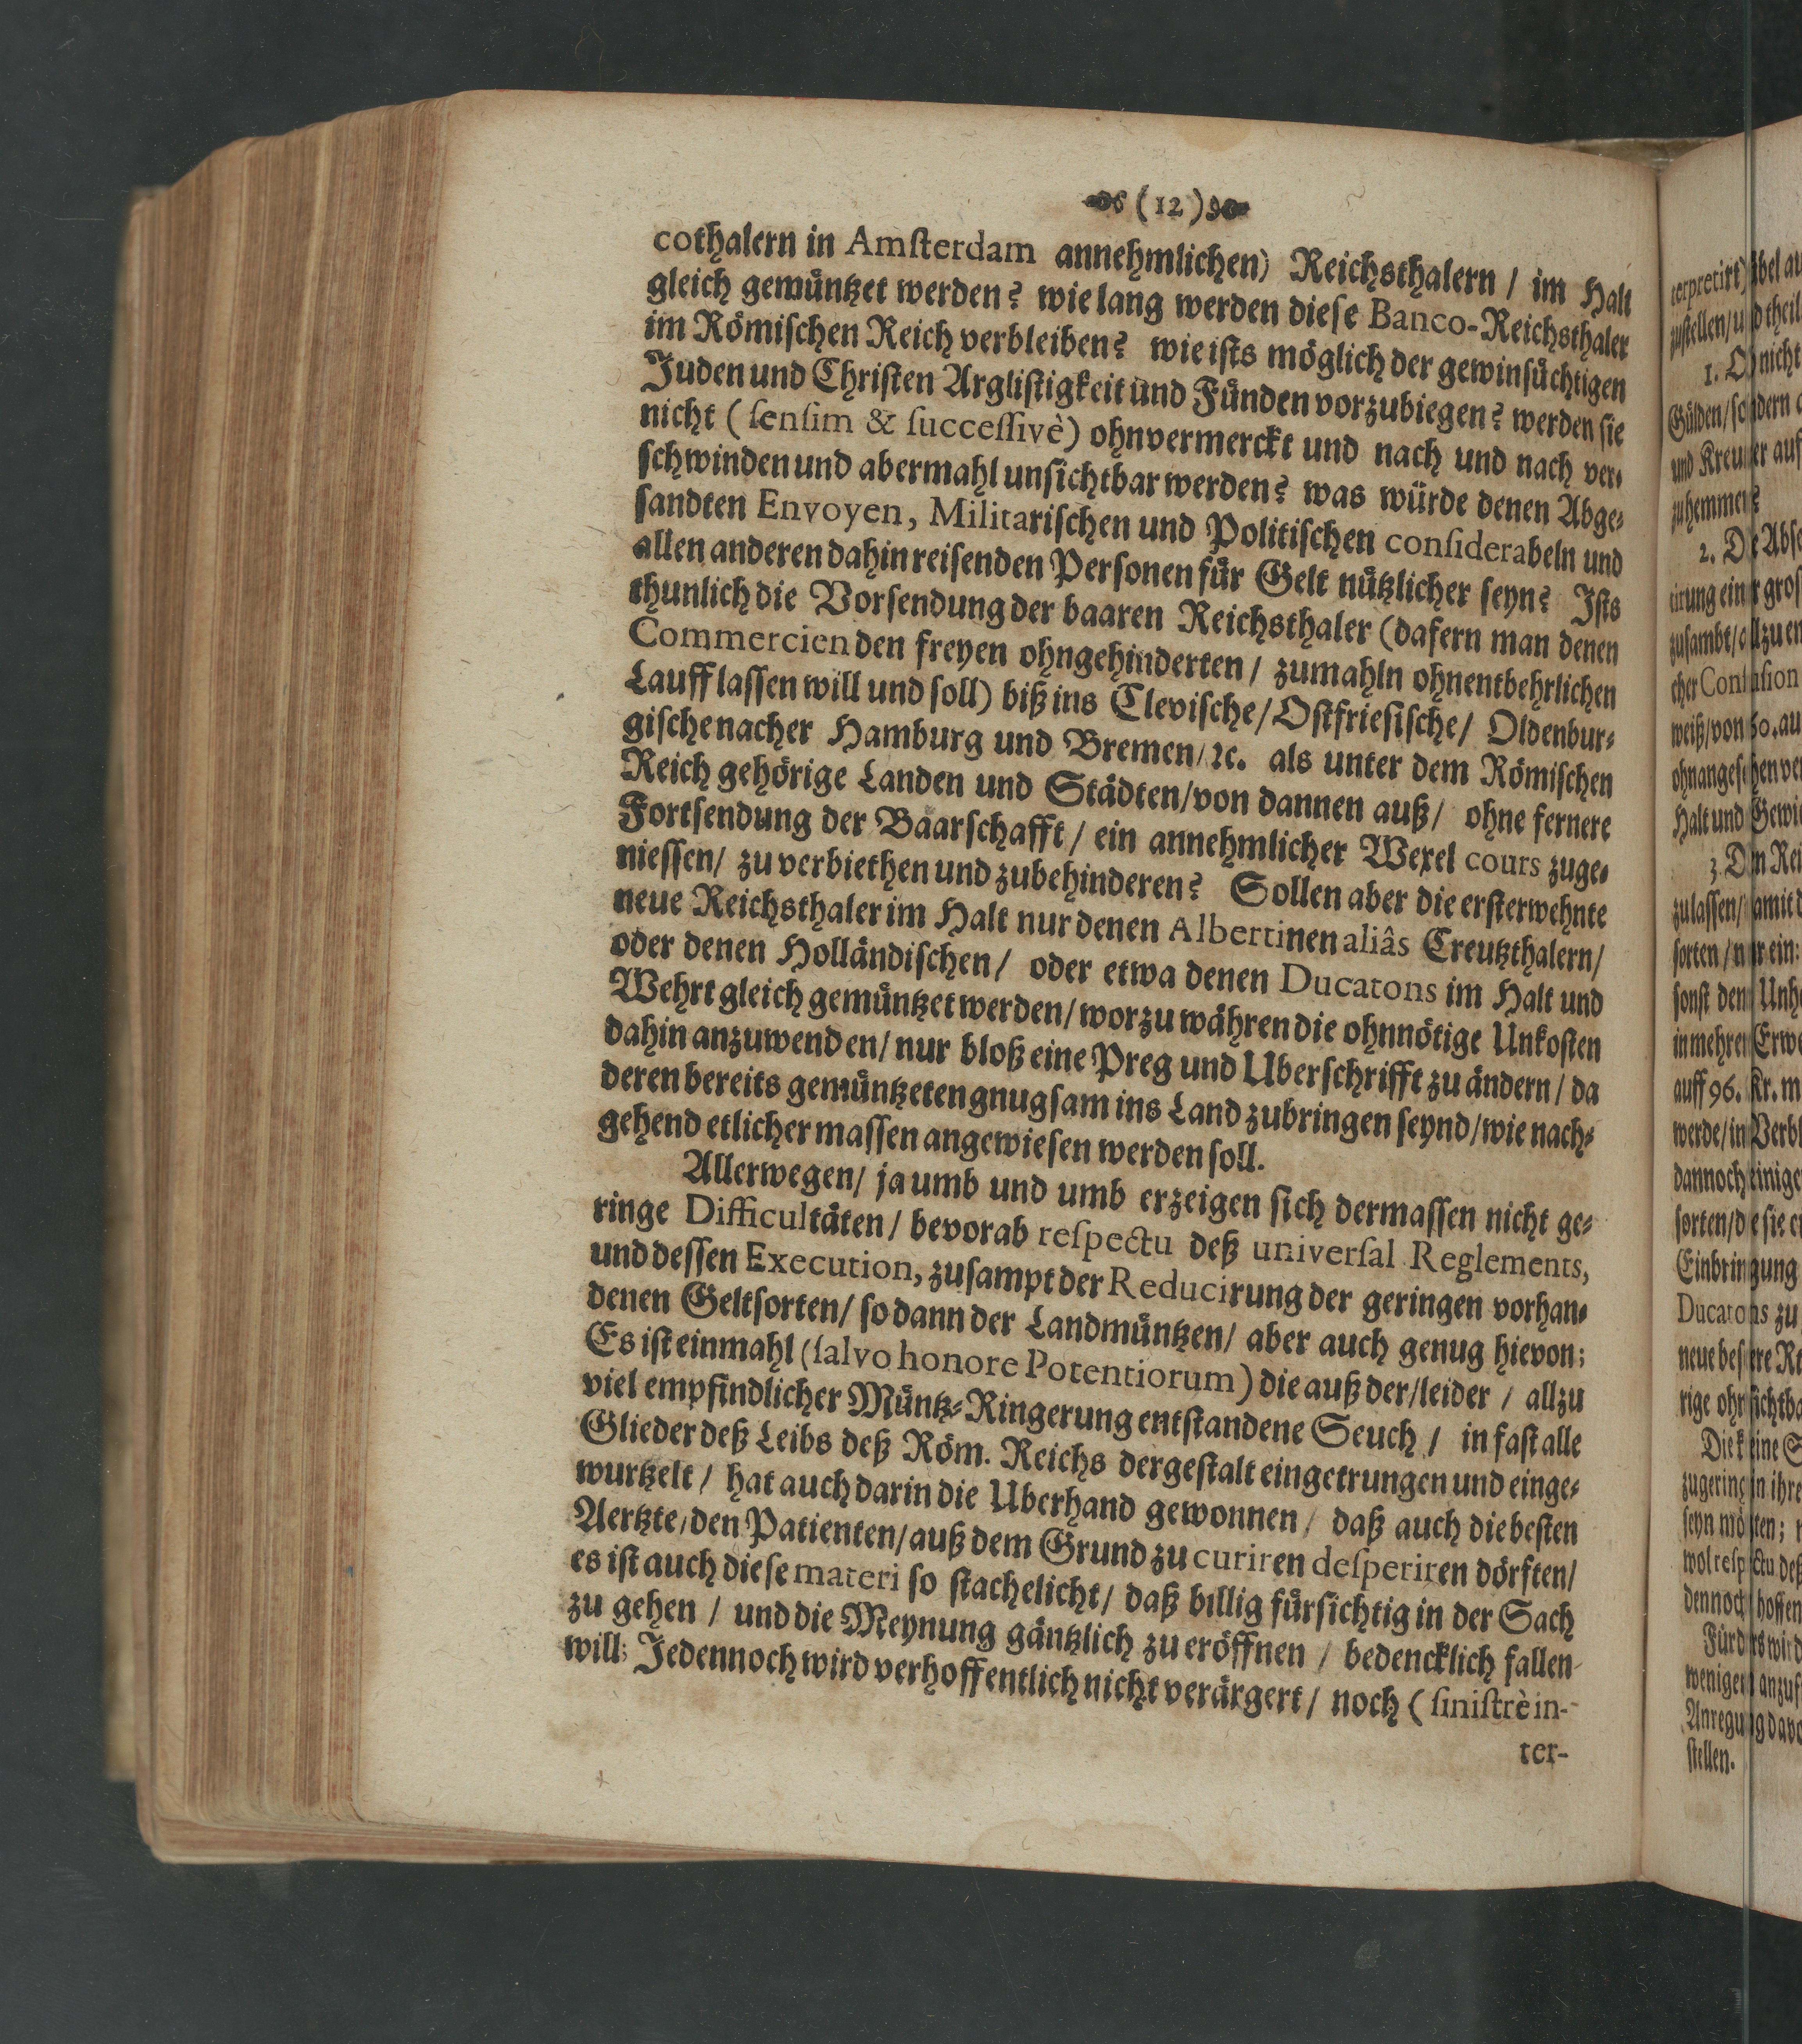 (12)
cothalern in Amſterdam annehmlichen) Reichsthalern / im Halt
gleich gemüntzet werden? wie lang werden dieſe Banco-Reichsthaler
im Römiſchen Reich verbleiben? wie iſts möglich der gewinſüchtigen
Juden und Chriſten Argliſtigkeit und Fünden vorzubiegen? werden ſie
nicht (ſenſim & ſucceſſivè) ohnvermerckt und nach und nach ver-
ſchwinden und abermahl unſichtbar werden? was würde denen Abge-
ſandten Envoyen, Militariſchen und Politiſchen conſiderabeln und
allen anderen dahin reiſenden Perſonen für Gelt nützlicher ſeyn? Iſts
thunlich die Vorſendung der baaren Reichsthaler (dafern man denen
Commercien den freyen ohngehinderten / zumahln ohnentbehrlichen
Lauff laſſen will und ſoll) biß ins Cleviſche / Oſtfrieſiſche / Oldenbur-
giſche nacher Hamburg und Bremen / ꝛc. als unter dem Römiſchen
Reich gehörige Landen und Städten / von dannen auß / ohne fernere
Fortſendung der Baarſchafft / ein annehmlicher Wexel cours zuge-
nieſſen / zu verbiethen und zubehinderen? Sollen aber die erſterwehnte
neue Reichsthaler im Halt nur denen Albertinen aliâs Creutzthalern /
oder denen Holländiſchen / oder etwa denen Ducatons im Halt und
Wehrt gleich gemüntzet werden / worzu währen die ohnnötige Unkoſten
dahin anzuwenden / nur bloß eine Preg und Uberſchrifft zu ändern / da
deren bereits gemüntzeten gnugſam ins Land zubringen ſeynd / wie nach-
gehend etlicher maſſen angewieſen werden ſoll.
Allerwegen / ja umb und umb erzeigen ſich dermaſſen nicht ge-
ringe Difficultäten / bevorab reſpectu deß univerſal Reglements,
und deſſen Execution, zuſampt der Reducirung der geringen vorhan-
denen Geltſorten / ſo dann der Landmüntzen / aber auch genug hievon;
Es iſt einmahl (ſalvo honore Potentiorum) die auß der / leider / allzu
viel empfindlicher Müntz-Ringerung entſtandene Seuch / in faſt alle
Glieder deß Leibs deß Röm. Reichs dergeſtalt eingetrungen und einge-
wurtzelt / hat auch darin die Uberhand gewonnen / daß auch die beſten
Aertzte / den Patienten / auß dem Grund zu curiren deſperiren dörften /
es iſt auch dieſe materi ſo ſtachelicht / daß billig fürſichtig in der Sach
zu gehen / und die Meynung gäntzlich zu eröffnen / bedencklich fallen
will; Jedennoch wird verhoffentlich nicht verärgert / noch (ſiniſtrè in-
ter-